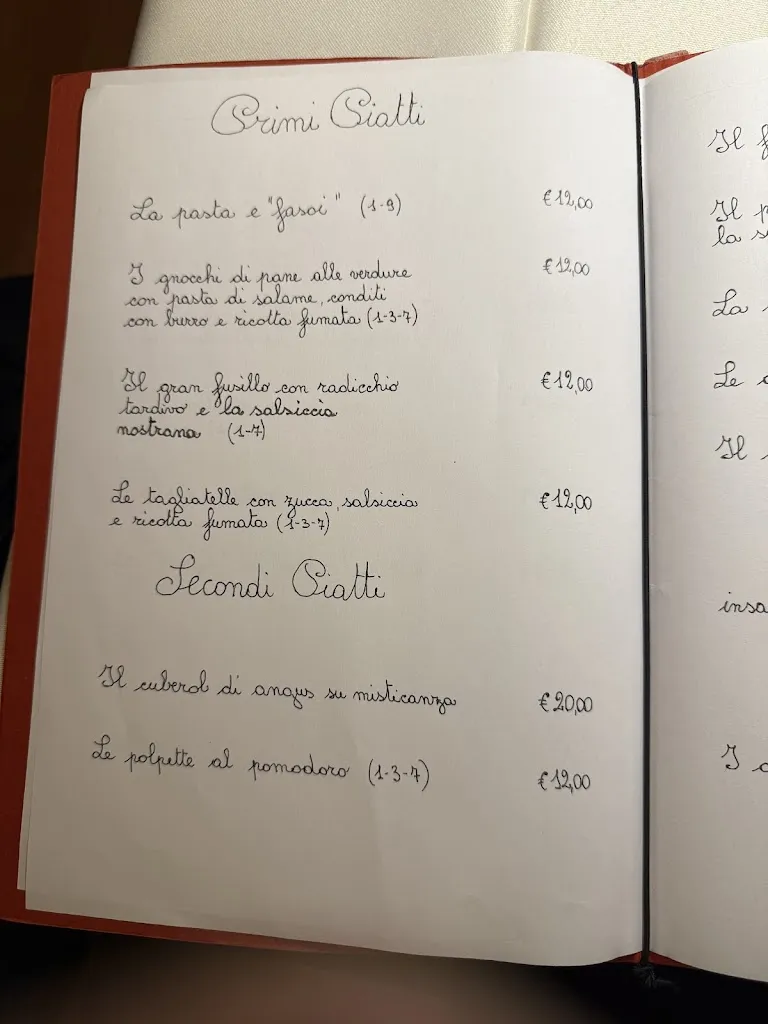 Primi Piatti
La pasta e "fasoi" (1-9) €12,00
I gnocchi di pane alle verdure €12,00
con pasta di salame, conditi
con burro e ricotta fumata (1-3-7)
Il gran fusillo con radicchio €12,00
tardivo e la salsiccia
nostrana (1-7)
Le tagliatelle con zucca, salsiccia €12,00
e ricotta fumata (1-3-7)
Secondi Piatti
Il cuberol di angus su misticanza €20,00
Le polpette al pomodoro (1-3-7) €12,00
Il
Il
la
La
Le
Il
insa
I